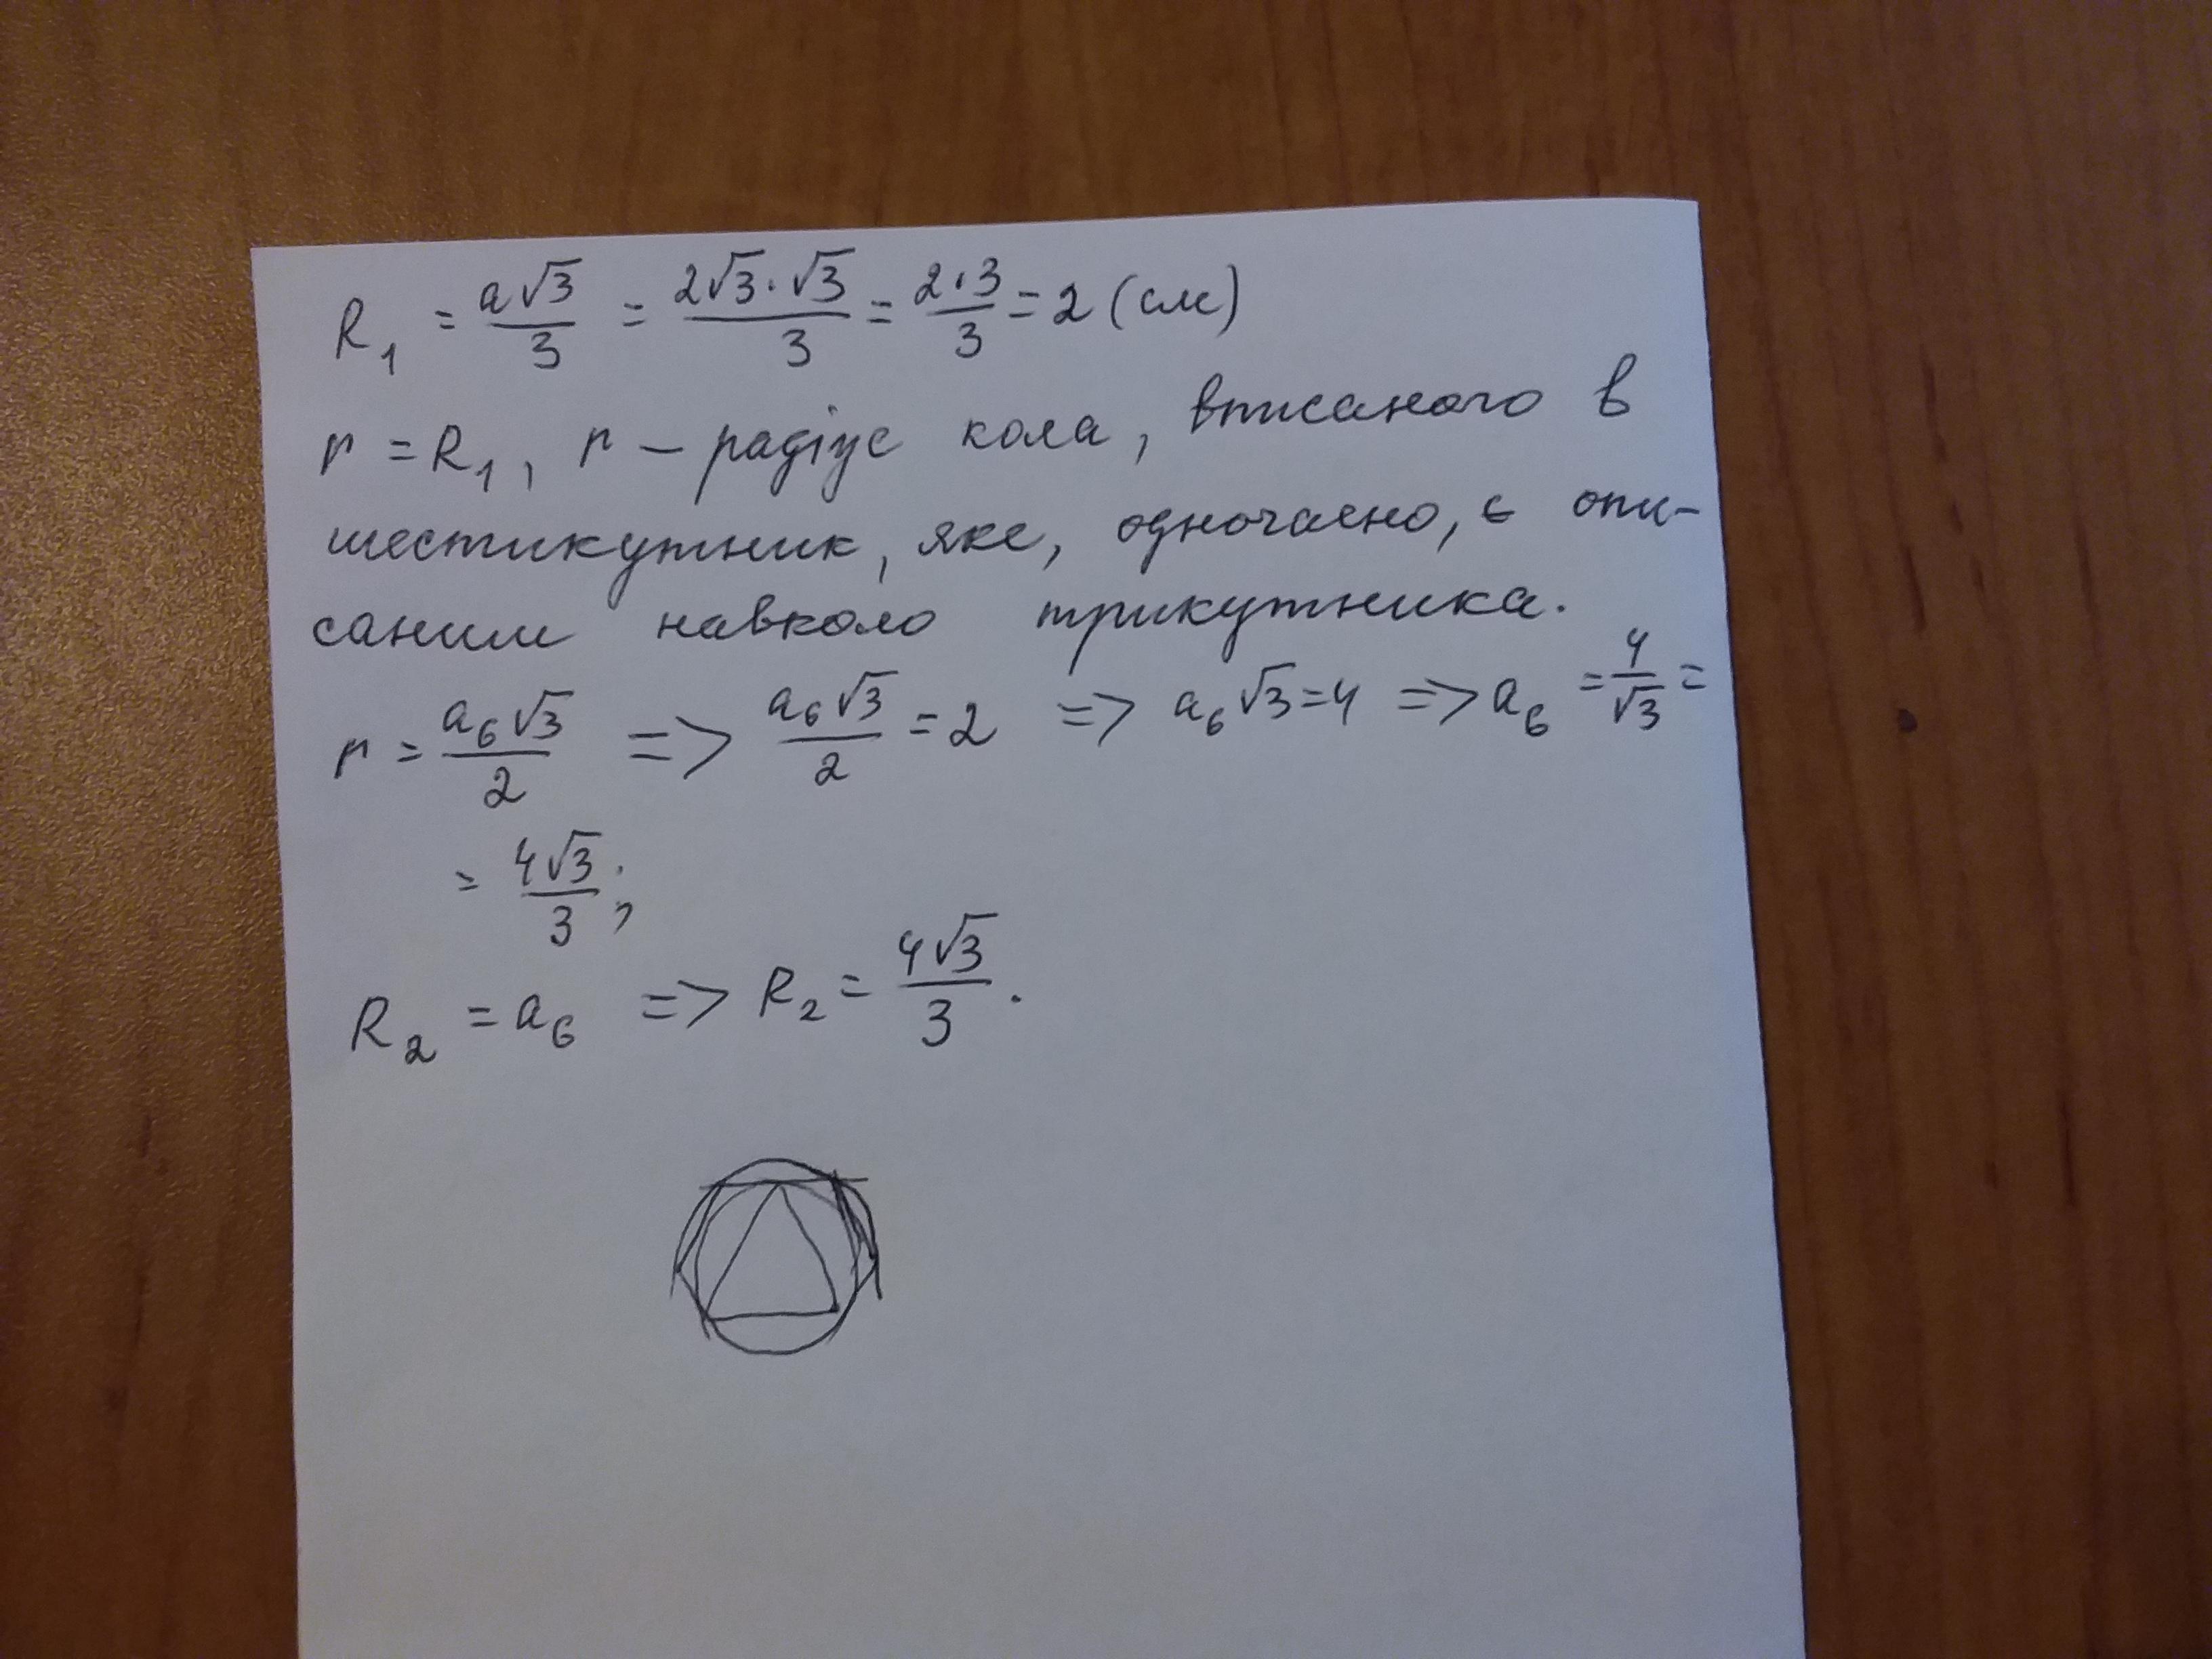 R₁ = a√3/3 = 2√3·√3/3 = 2·3/3 = 2 (см)
r = R₁, r – радіус кола, вписаного в
шестикутник, яке, одночасно, є опи-
саним навколо трикутника.
r = a₆√3/2 => a₆√3/2 = 2 => a₆√3 = 4 => a₆ = 4/√3 =
= 4√3/3;
R₂ = a₆ => R₂ = 4√3/3.